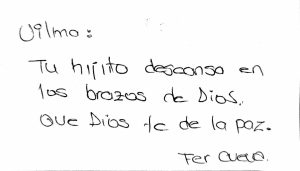 Vilma:
Tu hijito descansa en
los brazos de Dios.
Que Dios te de la paz.
Fer Cueva.